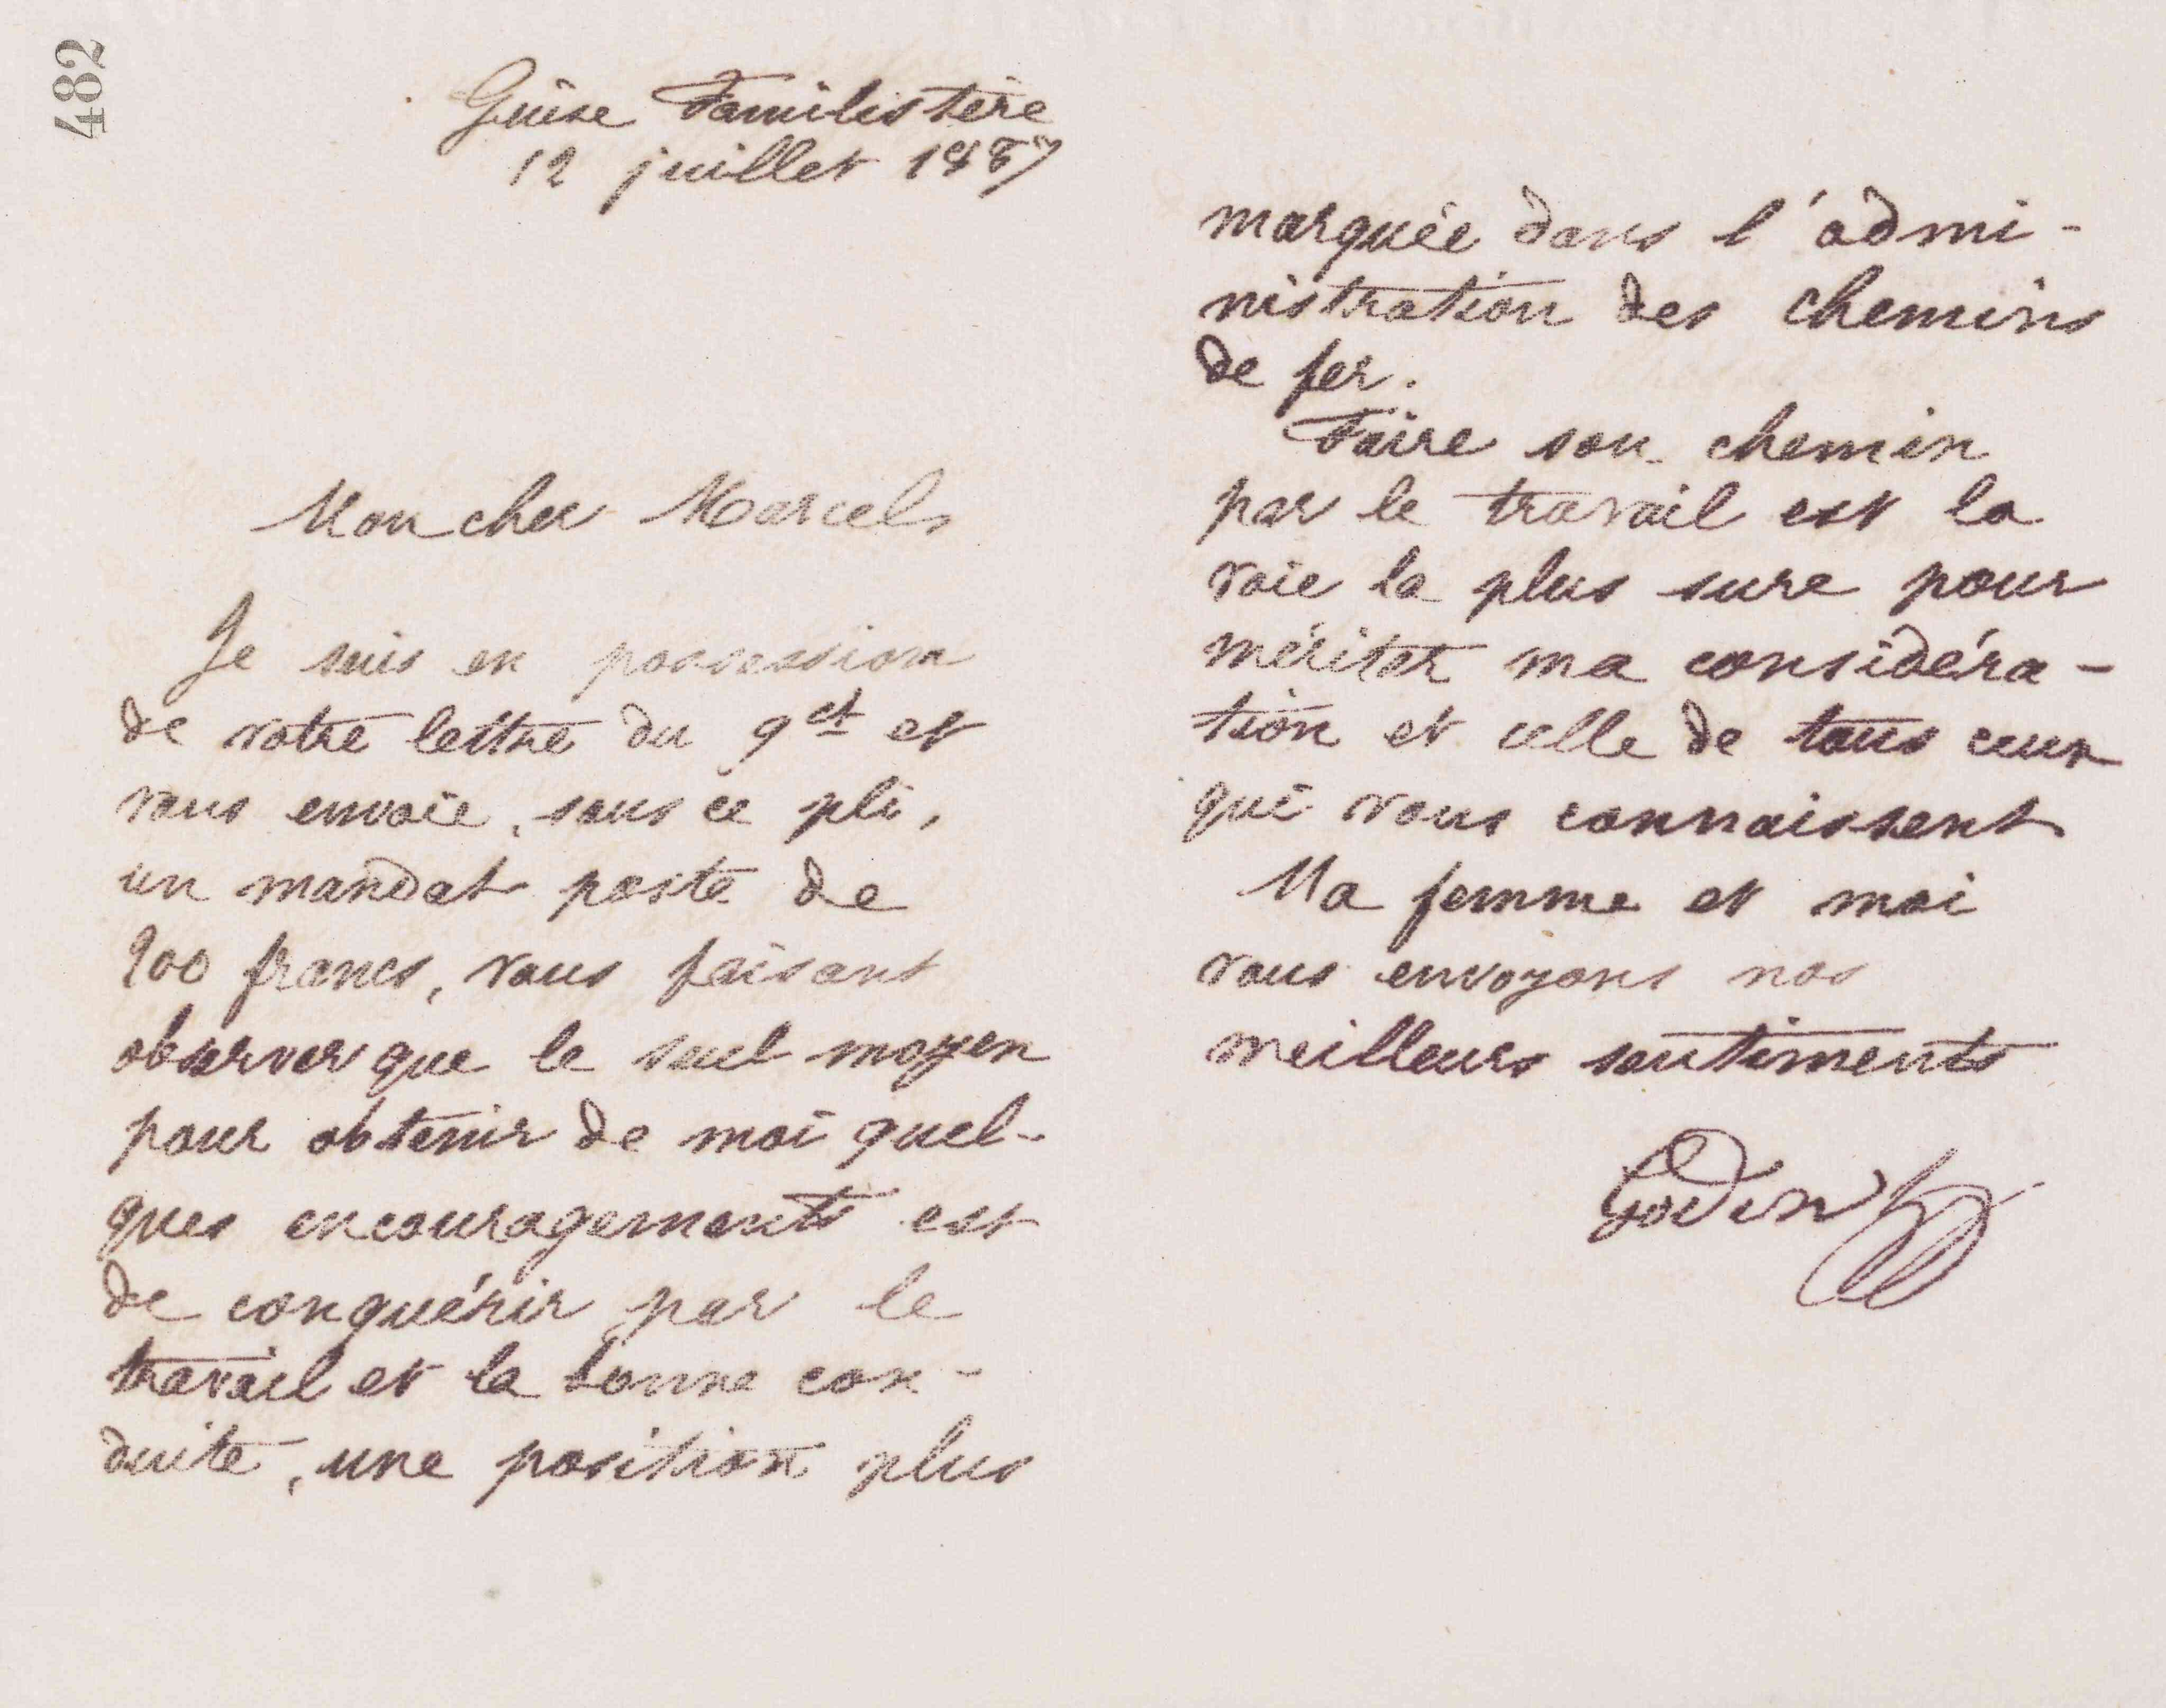 482
Guise Familistère
12 juillet 1887
Mon cher Marcel,
Je suis en possession
de votre lettre du 9 ct et
vous envoie, sous ce pli,
un mandat poste de
200 francs, vous faisant
observer que le seul moyen
pour obtenir de moi quel-
ques encouragements est
de conquérir par le
travail et la bonne con-
duite, une position plus
marquée dans l'admi-
nistration des chemins
de fer.
Faire son chemin
par le travail est la
voie la plus sure pour
mériter ma considéra-
tion et celle de tous ceux
qui vous connaissent
Ma femme et moi
vous envoyons nos
meilleurs sentiments
Godin